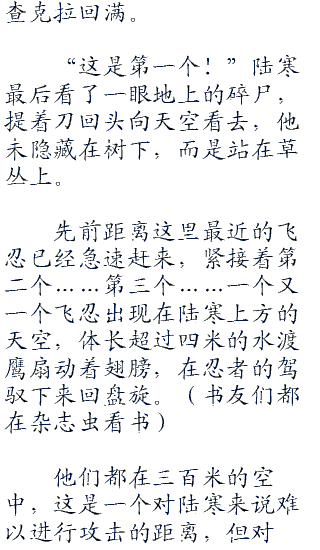 查克拉回满。
“这是第一个！”陆寒
最后看了一眼地上的碎尸，
提着刀回头向天空看去，他
未隐藏在树下，而是站在草
丛上。
先前距离这里最近的飞
忍已经急速赶来，紧接着第
二个……第三个……一个又
一个飞忍出现在陆寒上方的
天空，体长超过四米的水渡
鹰扇动着翅膀，在忍者的驾
驭下来回盘旋。（书友们都
在杂志虫看书）
他们都在三百米的空
中，这是一个对陆寒来说难
以进行攻击的距离，但对